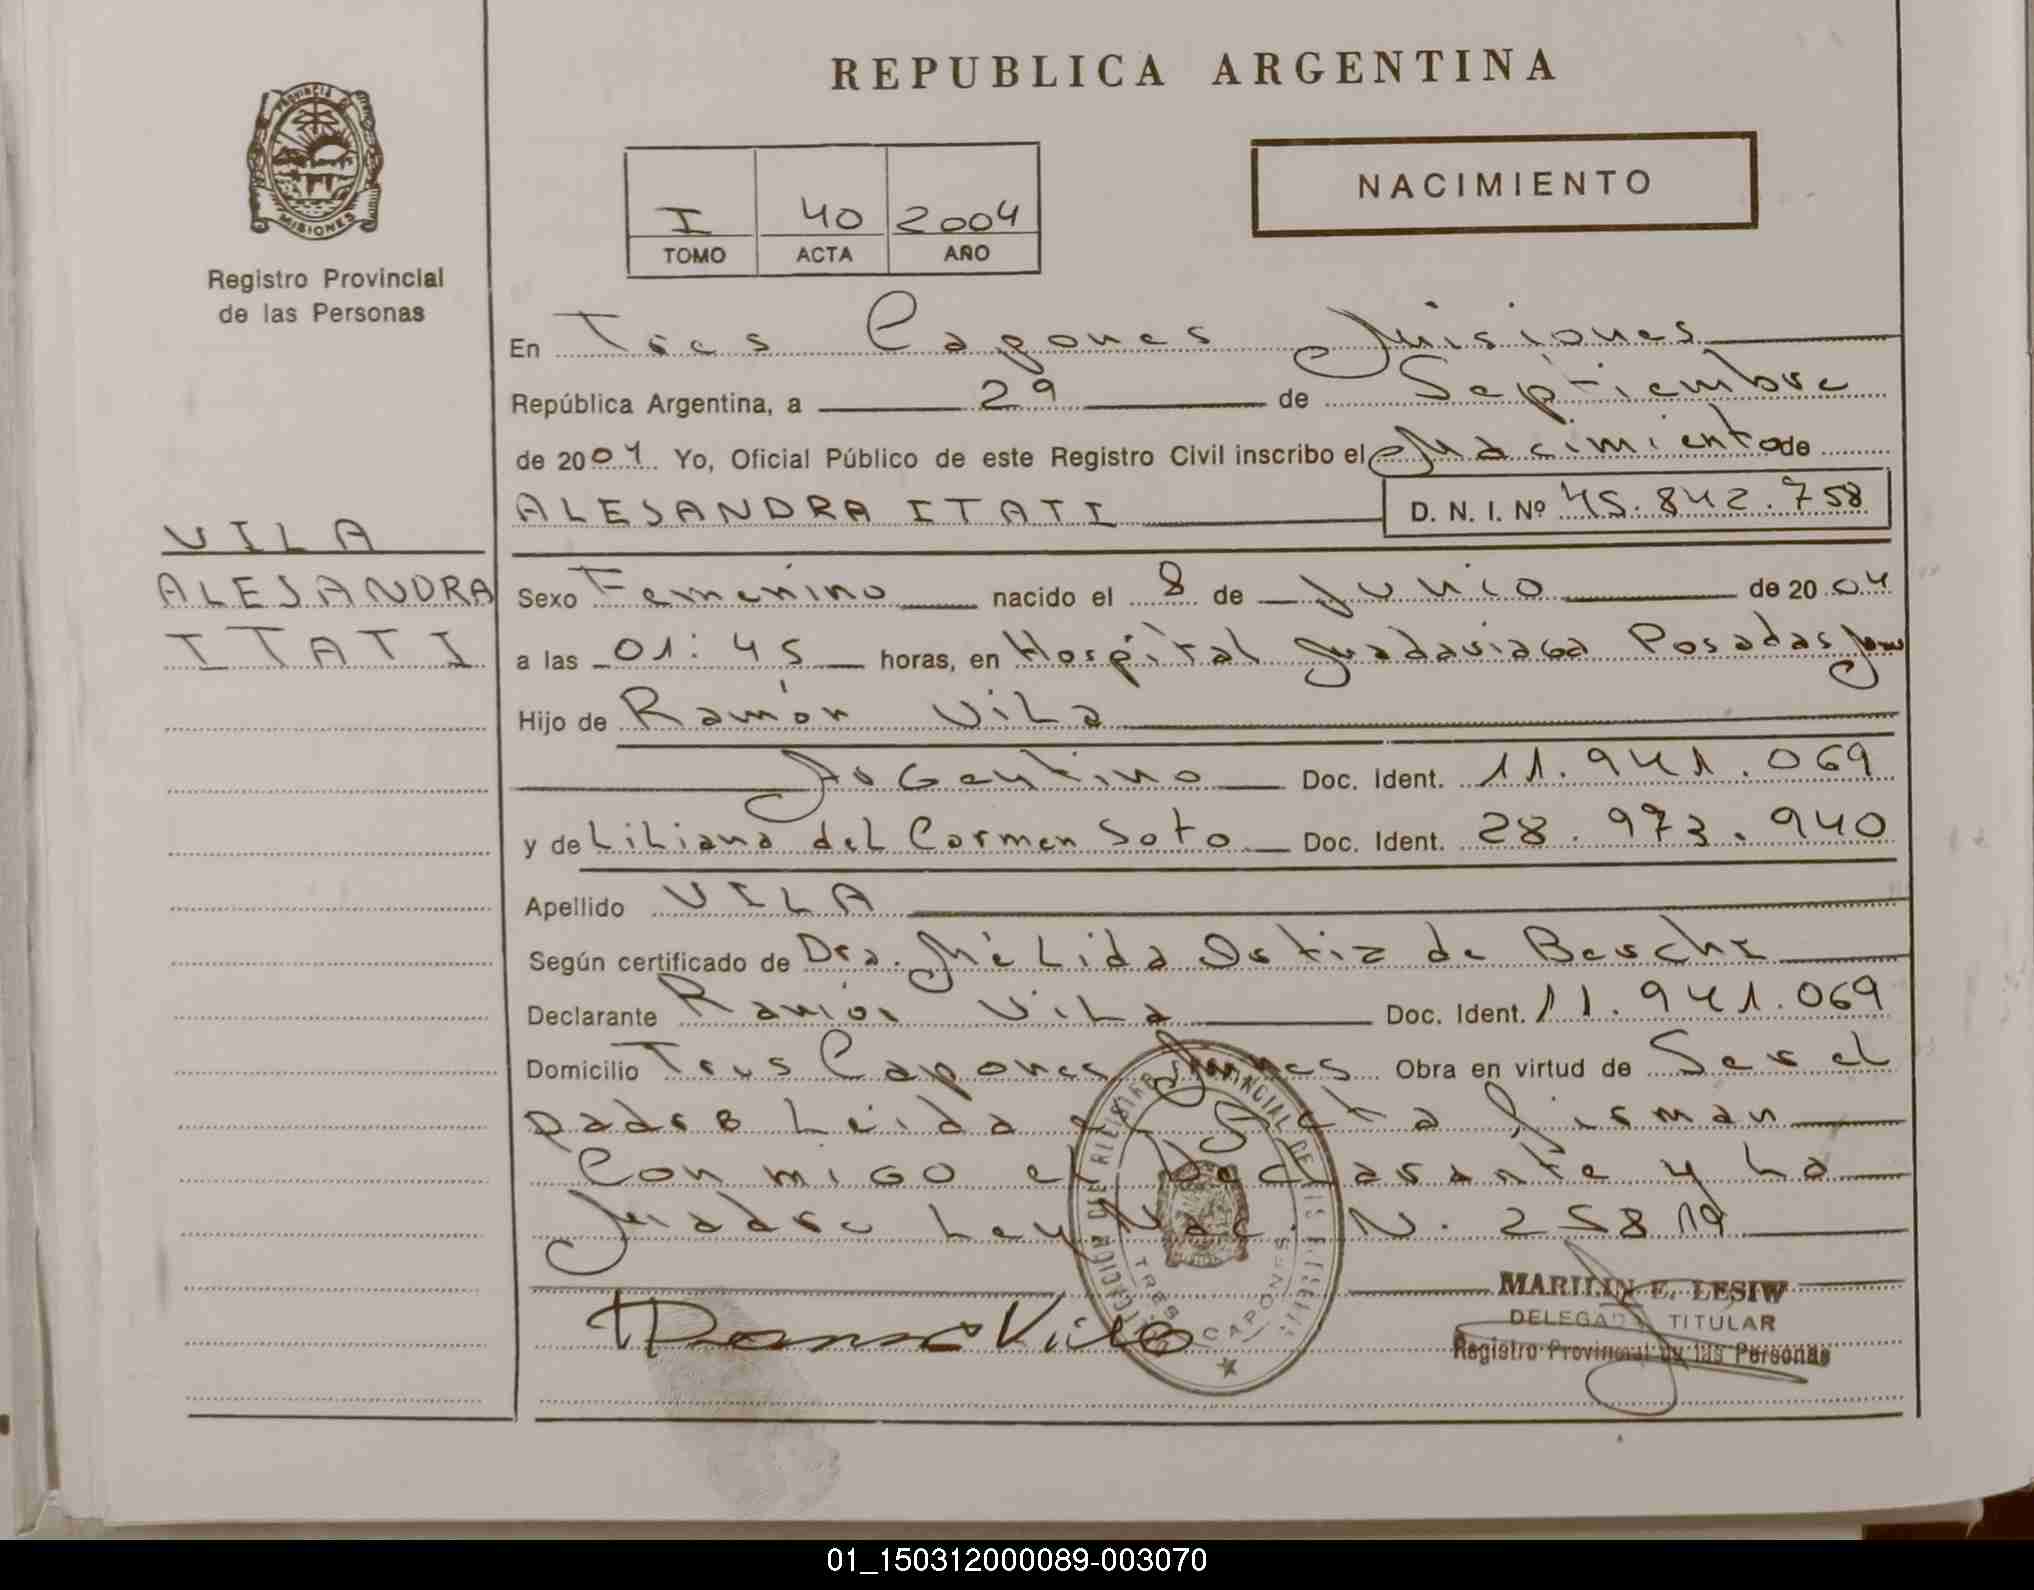 REPUBLICA ARGENTINA
PROVINCIA DE
MISIONES
Registro Provincial
de las Personas
NACIMIENTO
I 40 2004
TOMO ACTA AÑO
En Tres Capones Misiones
República Argentina, a 29 de Septiembre
de 2004 Yo, Oficial Público de este Registro Civil inscribo el Nacimiento de
ALEJANDRA ITATI D. N. I. Nº 45.842.758
VILA
ALEJANDRA
ITATI
Sexo Femenino nacido el 8 de Junio de 2004
a las 01:45 horas, en Hospital Madariaga Posadas Mnes
Hijo de Ramón Vila
Argentino Doc. Ident. 11.941.069
y de Liliana del Carmen Soto Doc. Ident. 28.973.940
Apellido VILA
Según certificado de Dra. Nélida Ortiz de Beschi
Declarante Ramón Vila Doc. Ident. 11.941.069
Domicilio Tres Capones Mnes Obra en virtud de Ser el
padre Leida el Acta firman
Conmigo el Declarante y La
Madre Ley Nac. N. 25819
TRES CAPONES
Ramon Vila
MARILIN E. LESIW
DELEGADA TITULAR
Registro Provincial de las Personas
01_150312000089-003070